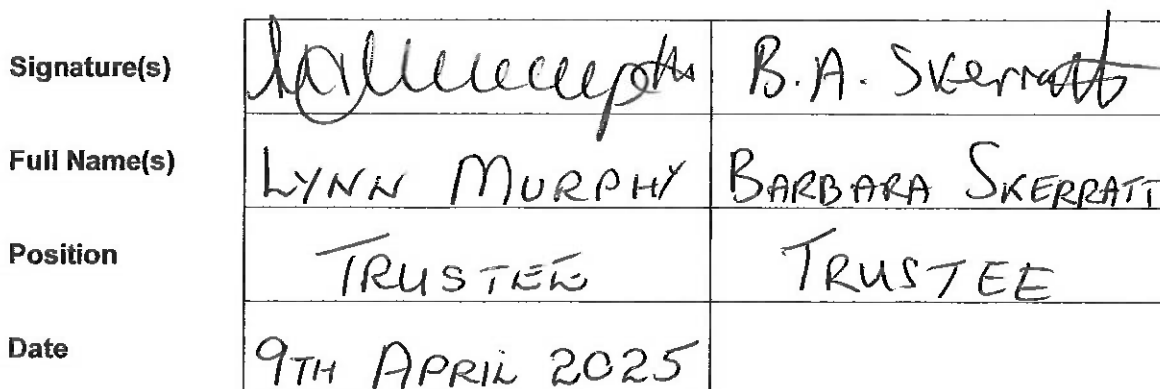 Signature(s) B.A. Skerratt
Full Name(s) LYNN MURPHY BARBARA SKERRATT
Position TRUSTEE TRUSTEE
Date 9TH APRIL 2025